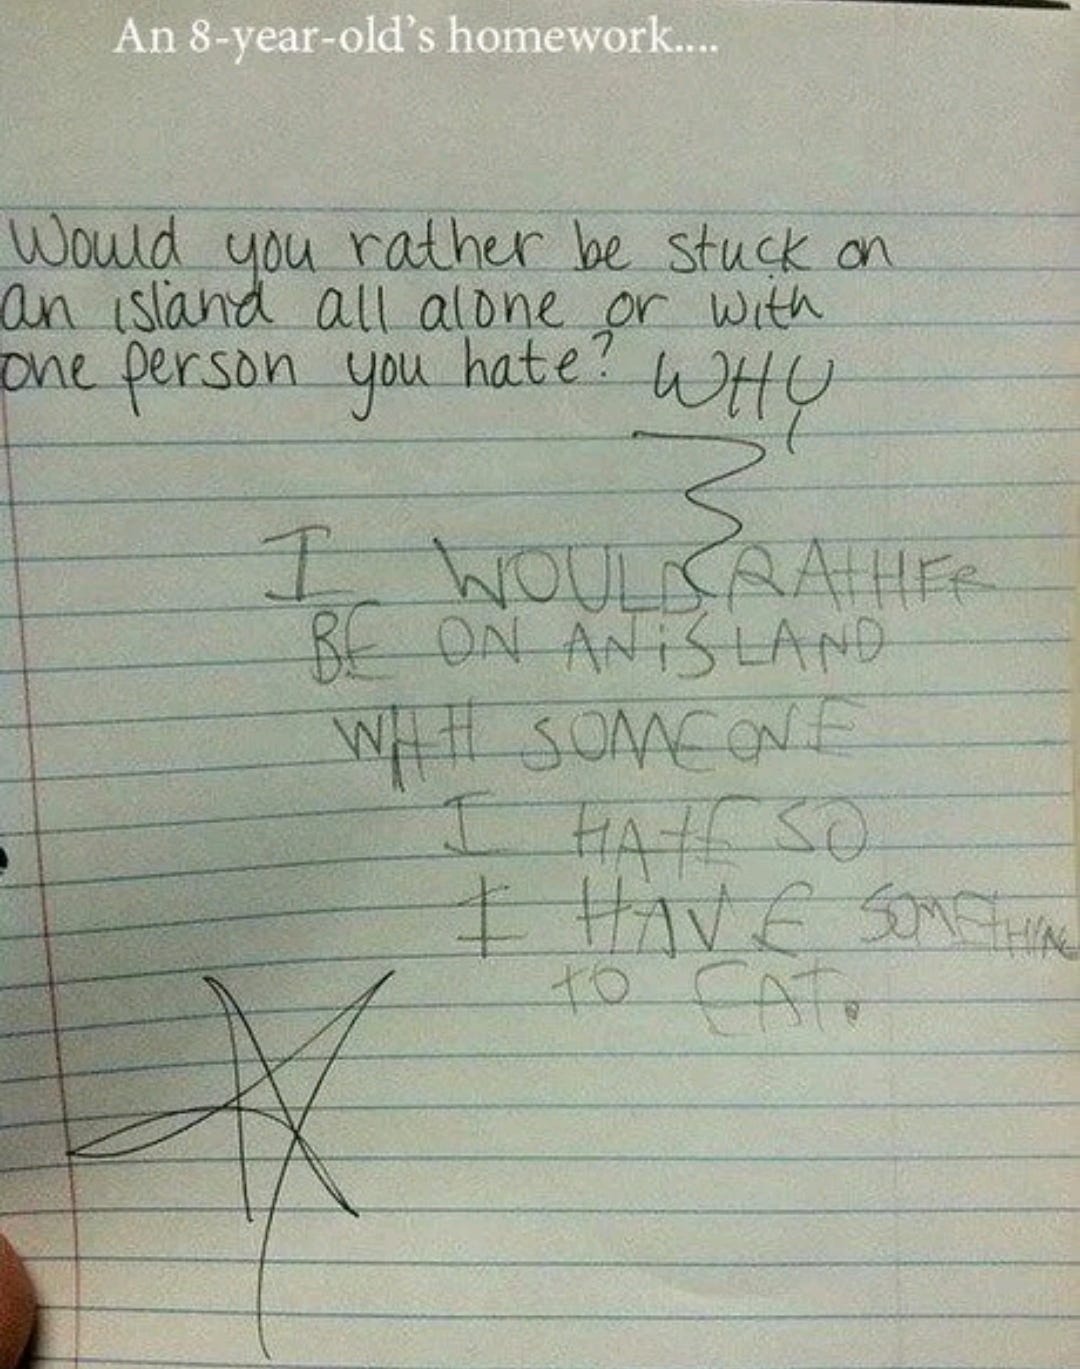 An 8-year-old's homework....
Would you rather be stuck on
an island all alone or with
one person you hate? WHY
I WOULD RATHER
BE ON AN iSLAND
WITH SOMEONE
I HATE SO
I HAVE SOMETHING
TO EAT.